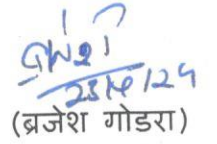 23/4/24
(ब्रजेश गोडरा)